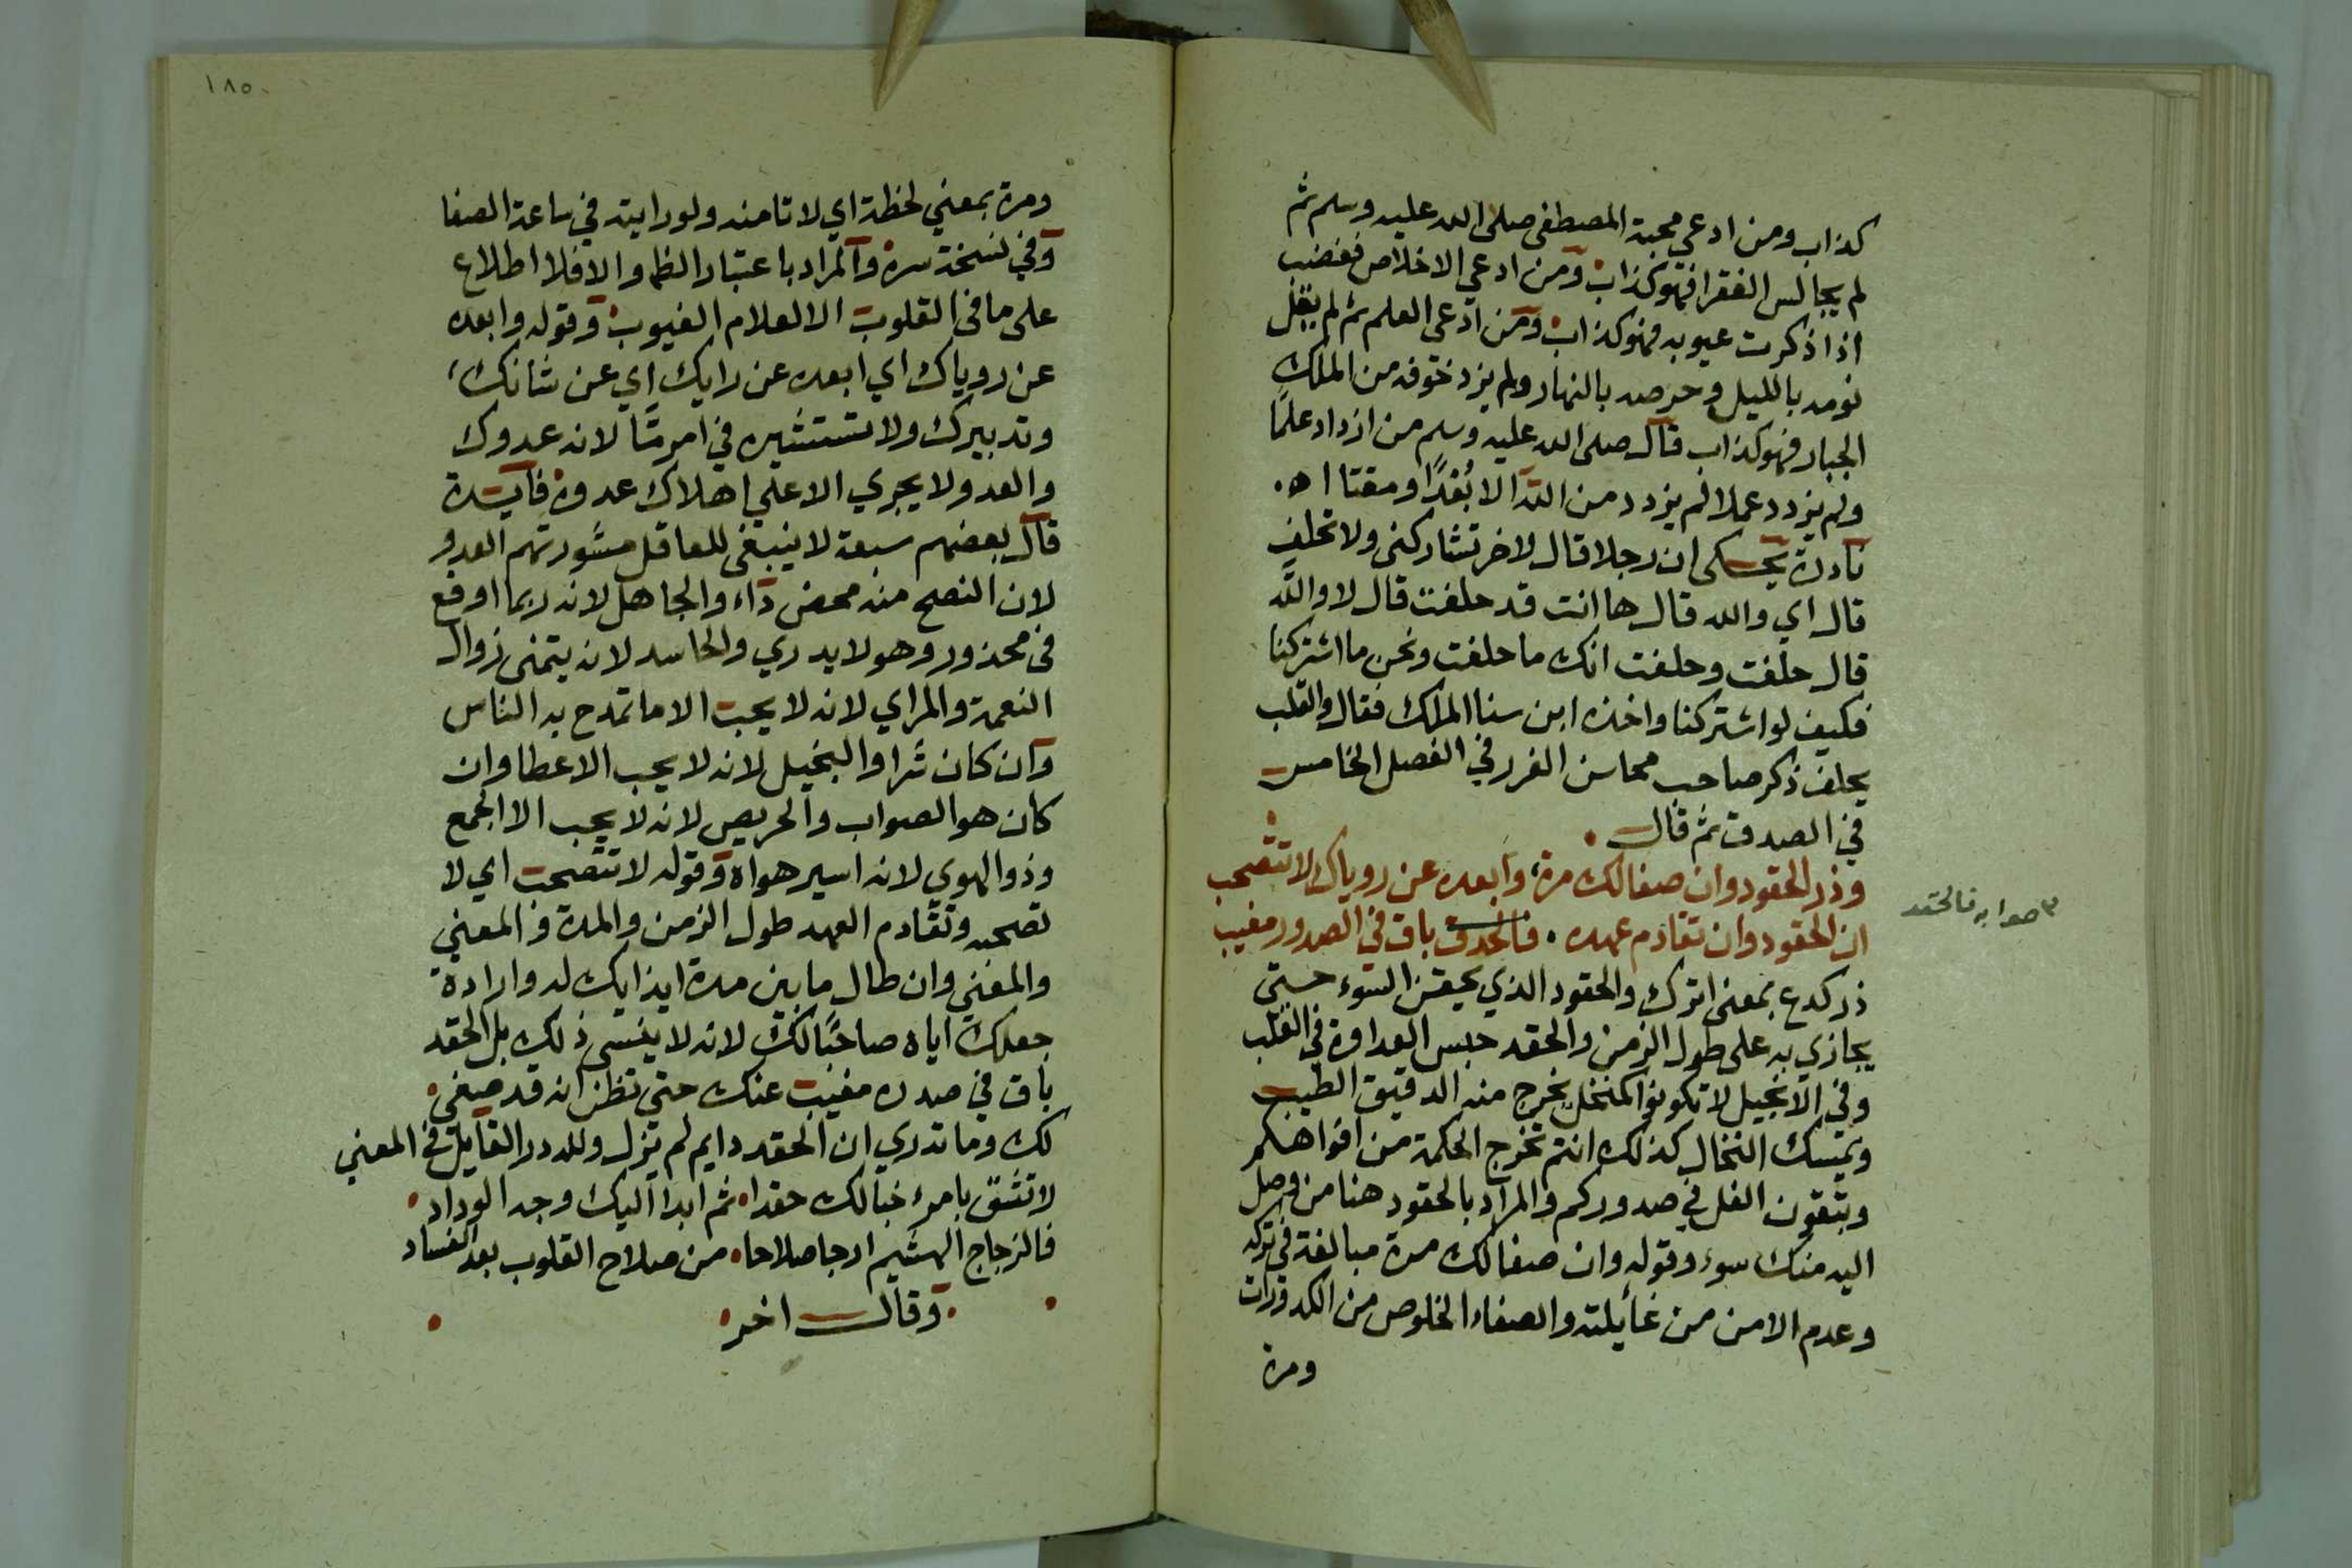 كذاب ومن ادعي محبة المصطفى صلى الله عليه وسلم ثم
لم يجالس الفقرا فهو كذاب ومن ادعي الاخلاص فغضب
اذا ذكرت عيوبه فهو كذاب ومن ادعى العلم ثم لم يقل
نومه بالليل وحرصه بالنهار ولم يزد خوفه من الملك
الجبار فهو كذاب قال صلى الله عليه وسلم من ازداد علمًا
ولم يزدد عملا لم يزدد من الله الا بُعْدًا ومقتا اه.
نادرة يحكى ان رجلا قال لاخر تشاركنى ولا تحلف
قال اي والله قال ها انت قد حلفت قال لا والله
قال حلفت وحلفت انك ما حلفت ونحن ما اشتركنا
فكيف لو اشتركنا واخذه ابن سنا الملك فقال والقلب
يحلف ذكر صاحب محاسن الغرر في الفصل الخامس
في الصدق ثم قال
وذر الحقود وان صفا لك مرة، وابعده عن روياك لا تتصحب
ان الحقود وان تقادم عهده . فالحدق باق في الصدور مغيب
٣ صوابه فالحقد
ذر كدع بمعنى اترك والحقود الذي يحقن السوء حتى
يجازي به على طول الزمن والحقد حبس العداوة في القلب
وفي الانجيل لا تكونوا كمنخل يخرج منه الدقيق الطيب
ويمسك النخال كذلك انتم تخرج الحكمة من افواهكم
وتبقون الغل في صدوركم والمراد بالحقود هنا من وصل
اليه منك سوء وقوله وان صفا لك مرة مبالغة في تركه
وعدم الامن من غائلته والصفاء الخلوص من الكدورات
ومرة
١٨٥
ومرة بمعني لحظة اي لا تامنه ولو رايته في ساعة الصفا
وفي نسخة سره والمراد باعتبار الظا والا فلا اطلاع
على ما فى القلوب الا لعلام الغيوب وقوله وابعده
عن روياك اي ابعده عن رايك اي عن شانك،
وتدبيرك ولا تستشيره في امر مّا لانه عدوك
والعدو لا يجري الا علي اهلاك عدوه فايدة
قال بعضهم سبعة لا ينبغى للعاقل مشورتهم العدو
لان النصح منه محض داء والجاهل لانه ربما اوقع
فى محذور وهو لا يدري والحاسد لانه يتمنى زوال
النعمة والمراي لانه لا يحب الا ما تمدح به الناس
وان كان شرا والبخيل لانه لا يحب الاعطا وان
كان هو الصواب والحريص لانه لا يحب الا الجمع
وذو الهوي لانه اسير هواه وقوله لا تتصحب اي لا
تصحبه وتقادم العهد طول الزمن والمدة و المعني
والمعني وان طال ما بين مدة ايذايك له وارادة
جعلك اياه صاحبًا لك لانه لا ينسى ذلك بل الحقد
باق في صدره مغيب عنك حتى تظن انه قد صفي
لك وما تدري ان الحقد دايم لم يزل ولله در القايل في المعني
لا تثق بامرء خبا لك حقدا، ثم ابدا اليك وجه الوداد
فالزجاج الهشيم ارجا صلاحا، من صلاح القلوب بعد الفساد
وقال اخر